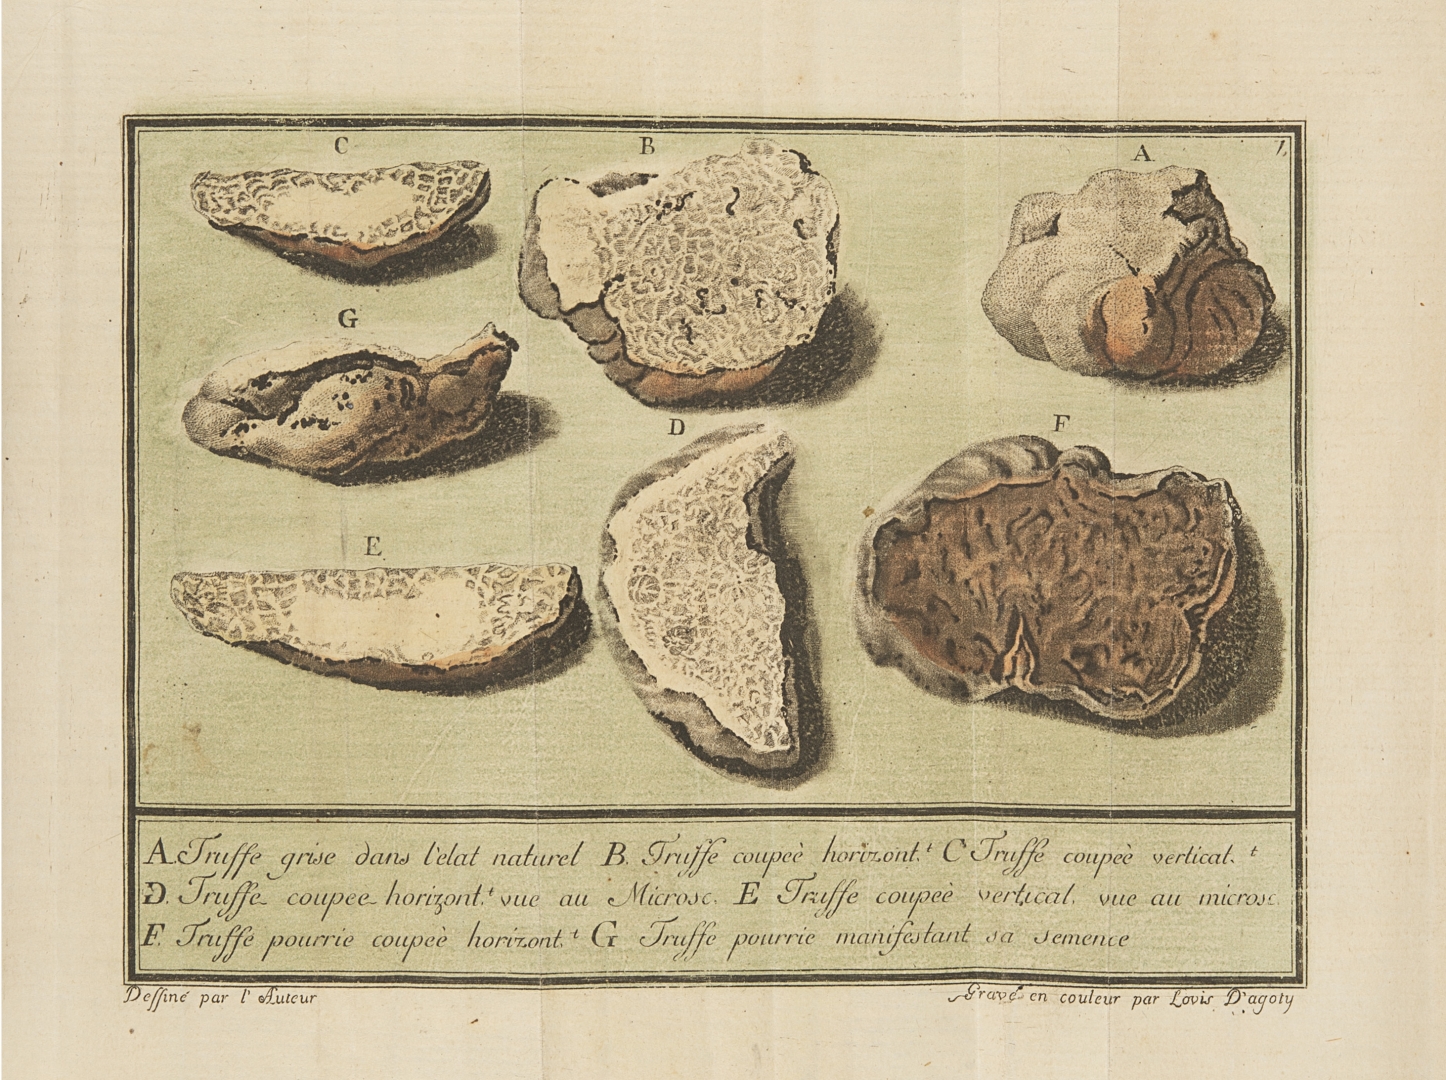 C
B
A
1,
G
D
F
E
A. Truffe grise dans l'etat naturel B. Truffe coupeè horizont.t C Truffe coupeè vertical. t
D. Truffe coupee horizont.t vue au Microsc. E Truffe coupeè vertical. vue au microsc.
F. Truffe pourrie coupeè horizont.t G Truffe pourrie manifestant sa semence
Dessiné par l'Auteur
Gravé en couleur par Lovis D'agoty